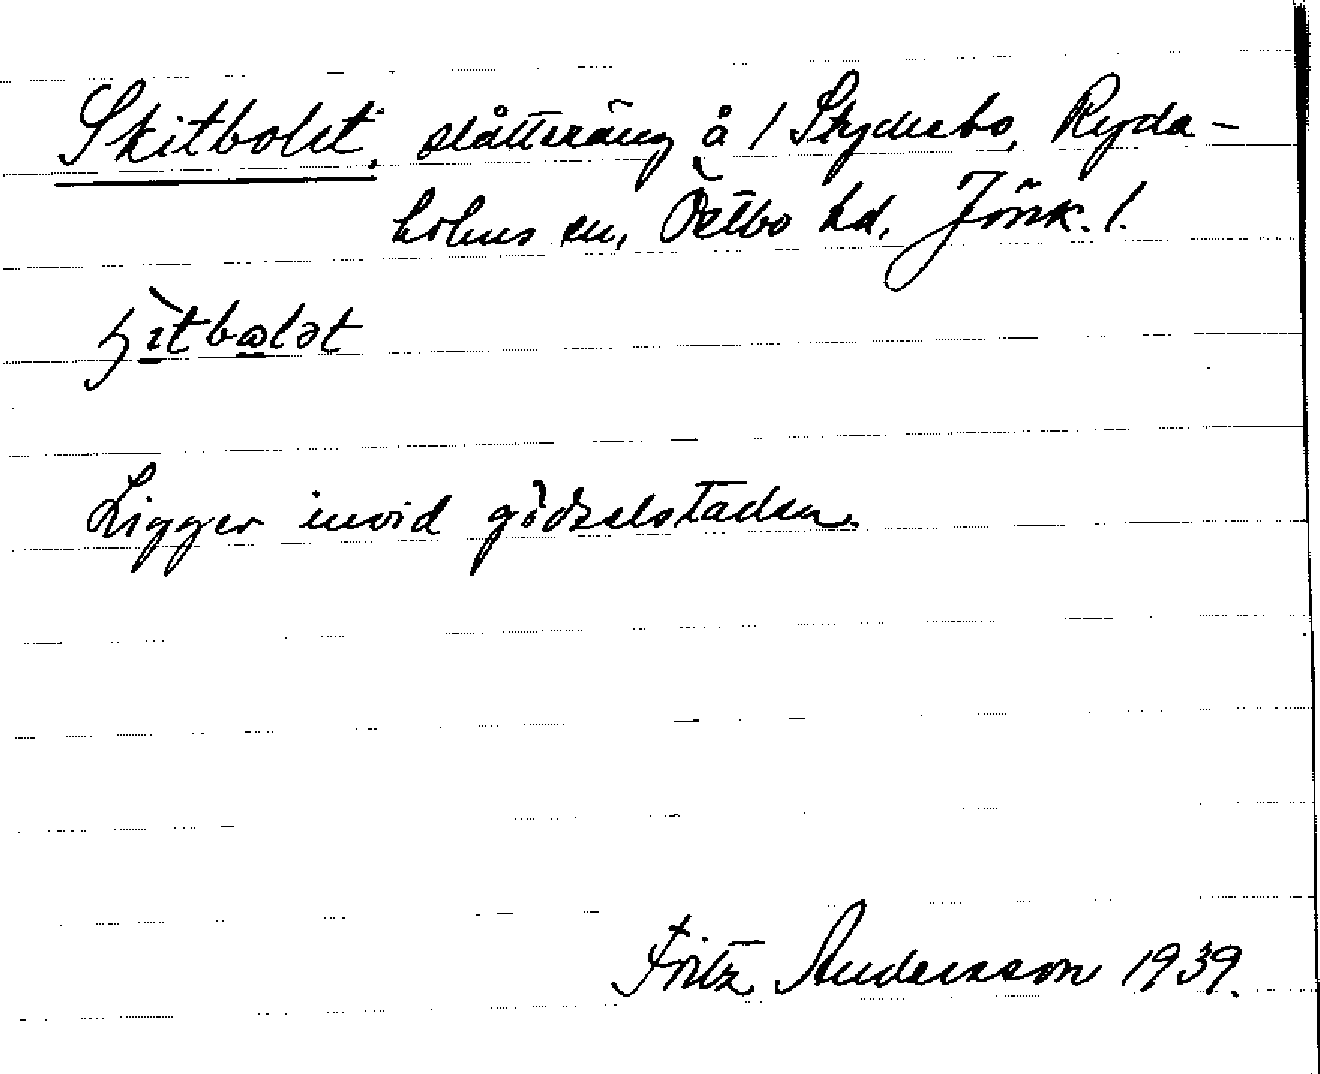 Skitbolet. slåtteräng å / Styckebo, Ryda-
holms sn, Östbo hd, Jönk. l.
Ligger invid gödselstaden.
Fritz Andersson 1939.